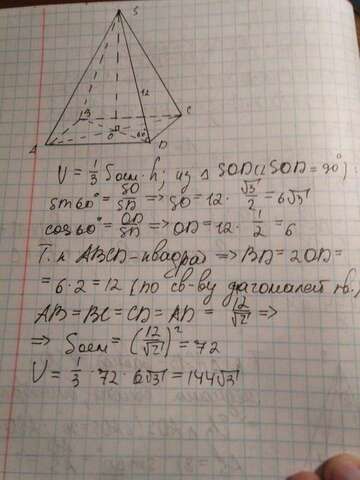 S
12
B
C
A
O
60°
D
V = 1/3 Sосн. · h; из △ SOD (∠SOD = 90°):
sin 60° = SO/SD => SO = 12 · √3/2 = 6√3
cos 60° = OD/SD => OD = 12 · 1/2 = 6
Т.к ABCD - квадрат => BD = 2OD =
= 6 · 2 = 12 (по св-ву дагоналей кв.)
AB = BC = CD = AD = 12/√2 =>
=> Sосн = (12/√2)² = 72
V = 1/3 · 72 · 6√3 = 144√3